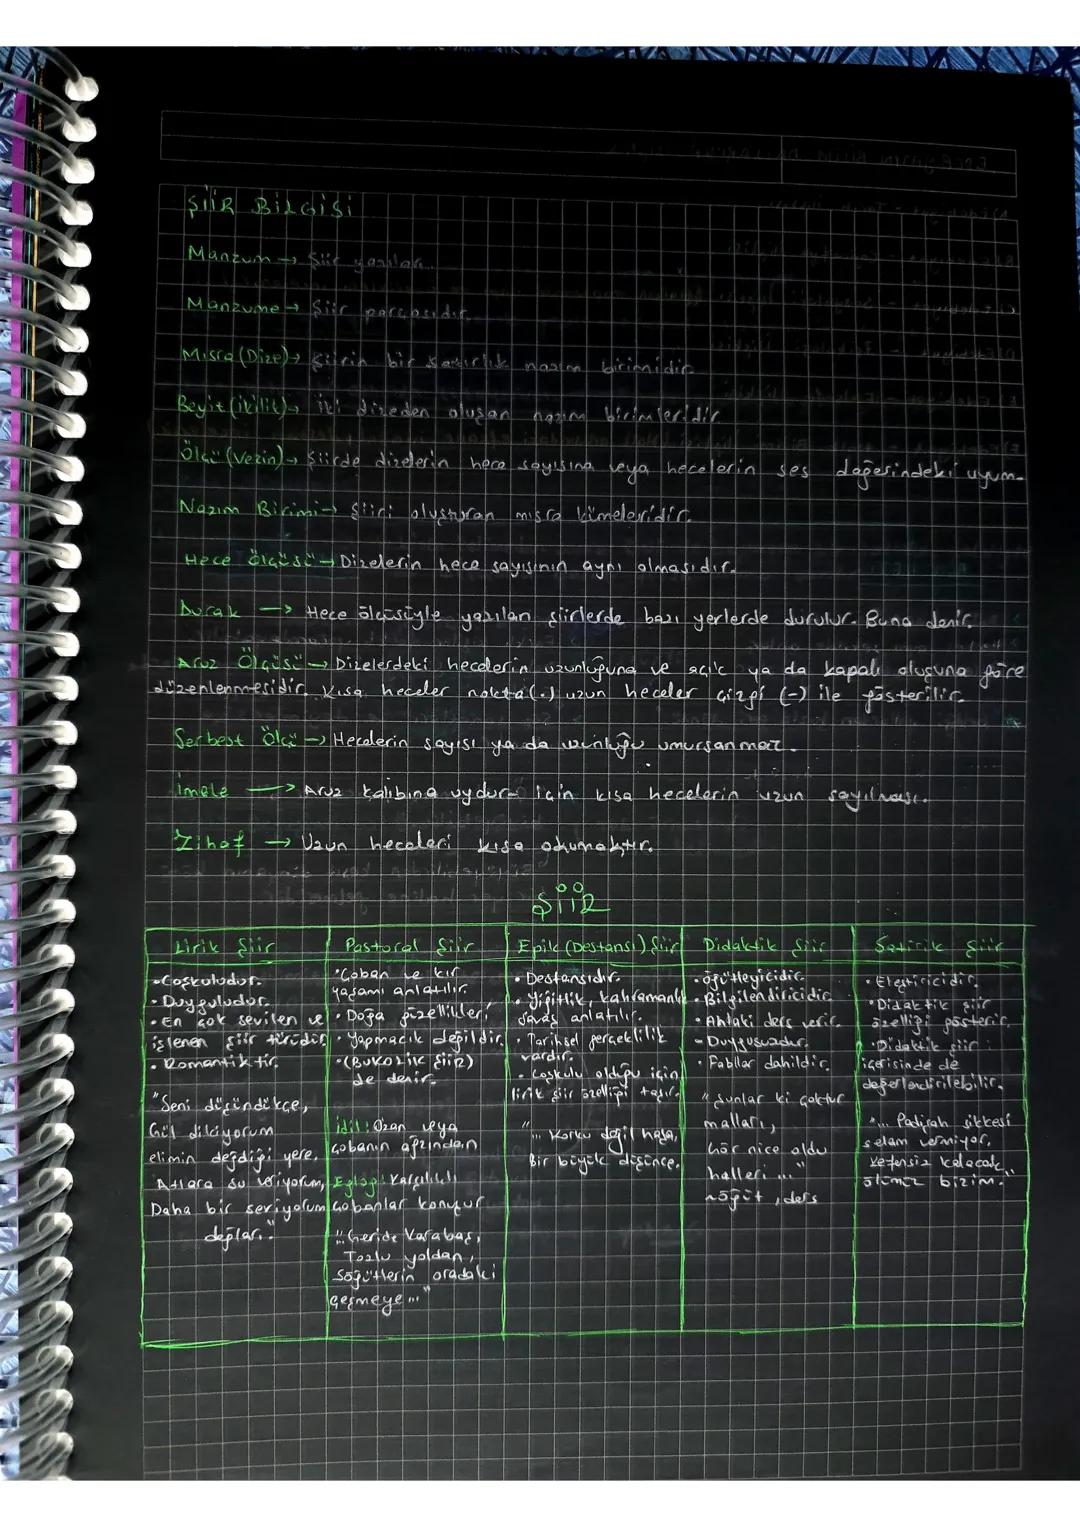 ŞİİR BİLGİSİ
Manzum → Şiir yazıları.
Manzume → Şiir parçasıdır.
Mısra (Dize) → Şiirin bir satırlık nazım birimidir.
Beyit (ikilik) → İki dizeden oluşan nazım birimleridir.
Ölçü (Vezin) → Şiirde dizelerin hece sayısına veya hecelerin ses değerindeki uyum.
Nazım Birimi → Şiiri oluşturan mısra kümeleridir.
Hece Ölçüsü → Dizelerin hece sayısının aynı olmasıdır.
Durak → Hece ölçüsüyle yazılan şiirlerde bazı yerlerde durulur. Buna denir.
Aruz Ölçüsü → Dizelerdeki hecelerin uzunluğuna ve açık ya da kapalı oluşuna göre
düzenlenmesidir. Kısa heceler nokta (.) uzun heceler çizgi (-) ile gösterilir.
Serbest Ölçü → Hecelerin sayısı ya da uzunluğu umursanmaz.
İmale → Aruz kalıbına uydur- için kısa hecelerin uzun sayılması.
Zihaf → Uzun heceleri kısa okumaktır.
ŞİİR
Lirik Şiir
• Coşkuludur.
• Duyguludur.
• En çok sevilen ve
işlenen şiir türüdür.
• Romantiktir.
"Seni düşündükçe,
Gül dikiyorum
elimin değdiği yere.
Atlara su veriyorum,
Daha bir seviyorum
dağları."
Pastoral Şiir
• Çoban ve kır
yaşamı anlatılır.
• Doğa güzellikleri,
• Yapmacık değildir.
• (BUKOLİK ŞİİR)
de denir.
İdil: Ozan veya
çobanın ağzından
Eglog: Karşılıklı
çobanlar konuşur
"Geride Karabaş,
Tozlu yoldan,
Söğütlerin oradaki
çeşmeye..."
Epik (Destansı) Şiir
• Destansıdır.
• Yiğitlik, kahramanlık
savaş anlatılır.
• Tarihsel gerçeklilik
vardır.
• Coşkulu olduğu için
lirik şiir özelliği taşır.
"... Korku değil hala,
Bir büyük düşünce.
Didaktik Şiir
• Öğütleyicidir.
• Bilgilendiricidir.
• Ahlaki ders verir.
- Duygusuzdur.
• Fabllar dahildir.
"Şunlar ki çoktur
malları,
Gör nice oldu
halleri ..."
↝ öğüt, ders
Satirik Şiir
• Eleştiricidir.
• Didaktik şiir
özelliği gösterir.
• Didaktik şiir
içerisinde de
değerlendirilebilir.
"... Padişah sikkesi
selam vermiyor,
Kefensiz kalacak
ölümüz bizim."